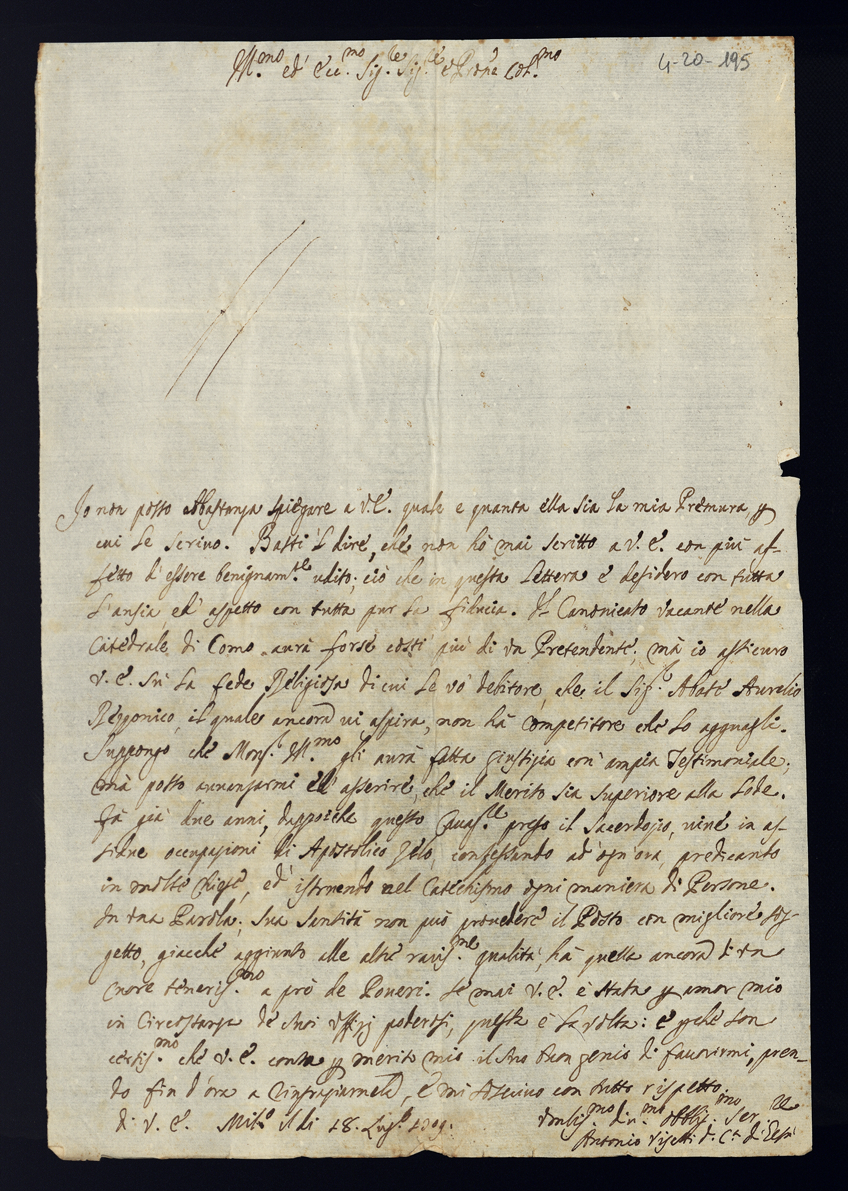 Ill.mo ed Ecc.mo Sig.re Sig.re e Pron.e Col.mo
4-20-195
Io non posso Abastanza spiegare a V.E. quale e quanta ella sia la mia Premura, p
cui Le scrivo. Basti 'l dire, che non hò mai scritto a V.E. con più af-
fetto d'essere benignam.te udito; ciò che in questa Lettera e desidero con tutta
l'ansia, ed' aspetto con tutta pur la fiducia. Il Canonicato vacante nella
Catedrale di Como avrà forse costì più di un Pretendente; mà io assicuro
V.E. sù la fede Religiosa di cui Le vò debitore, che il Sig.r Abate Aurelio
Rezzonico, il quale ancora vi aspira, non hà Competitore che lo agguagli.
Suppongo che Mons.r Ill.mo gli avrà fatta giustizia con' ampia Testimoniale;
mà posso avvanzarmi ed' asserire, che il Merito sia superiore alla Lode.
Fà già due anni, dappoiche questo Cavag.re preso il Sacerdozio, vive in as-
sidue occupazioni di Apostolico Zelo, confessando ad' ogn'ora, predicando
in molte Chiese, ed' istruendo nel Catechismo ogni maniera di Persone.
In una Parola; Sua Santità non può provedere il Posto con migliore sog-
getto, giacchè aggiunto alle altre raris.me qualità, hà quella ancora di un
Cuore teneris.mo a prò de Poveri. Se mai V.E. è stata p amor mio
in Circostanza de suoi Uffizj poderosi, questa è la volta: e pchè son
certis.mo che V.E. conta p merito mio il suo buon genio di favorirmi, pren-
do fin d'ora a ringraziarnela, e mi soscrivo con tutto rispetto.
di V.E. Mil.o il di 18. Lug.o 1709.
Div.mo Obblig.mo Ser.re
Antonio